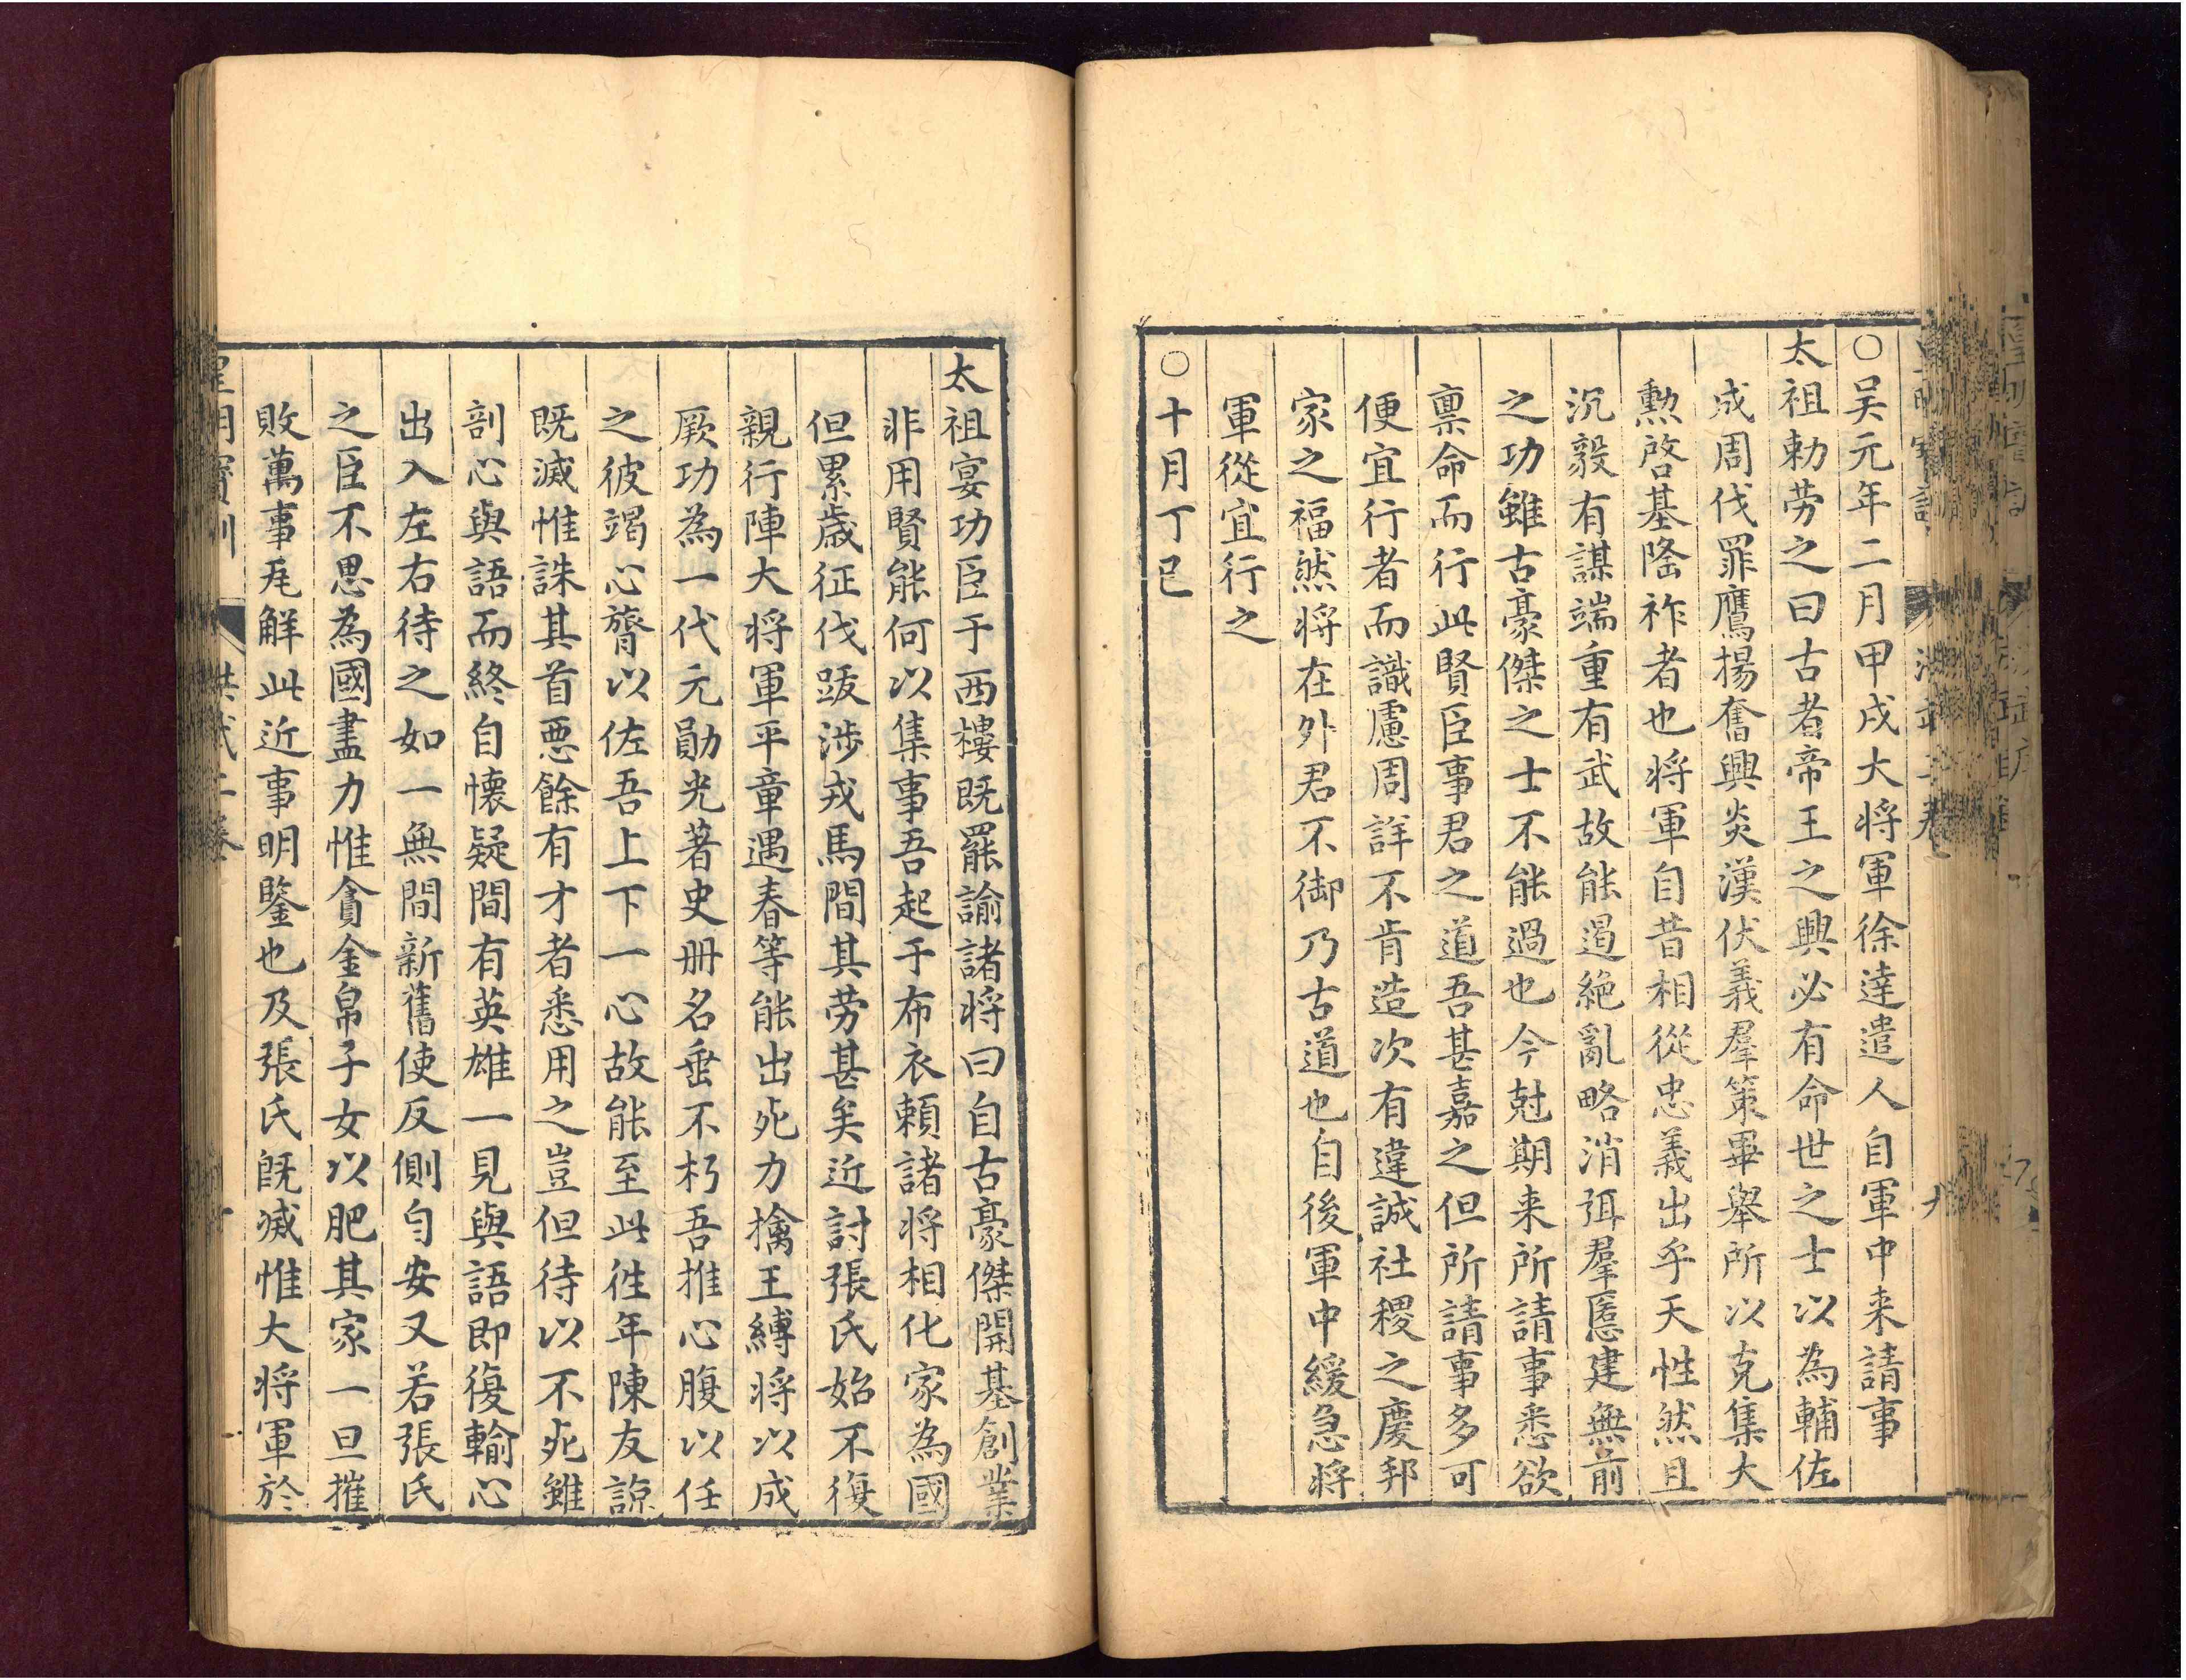 ○吴元年二月甲戌大将軍徐達遣人自軍中来請事
太祖勅劳之曰古者帝王之興必有命世之士以為輔佐
成周伐罪鷹揚奮興炎漢伏義羣策畢舉所以克集大
勲啓基隆祚者也将軍自昔相從忠義出乎天性然且
沉毅有謀端重有武故能遏絶亂略消弭羣慝建無前
之功雖古豪傑之士不能過也今尅期来所請事悉欲
禀命而行此賢臣事君之道吾甚嘉之但所請事多可
便宜行者而識慮周詳不肯造次有違誠社稷之慶邦
家之福然将在外君不御乃古道也自後軍中緩急将
軍從宜行之
○十月丁巳
太祖宴功臣于西樓既罷諭諸将曰自古豪傑開基創業
非用賢能何以集事吾起于布衣頼諸将相化家為國
但累歳征伐跋涉戎馬間其劳甚矣近討張氏始不復
親行陣大将軍平章遇春等能出死力擒王縛将以成
厥功為一代元勛光著史册名垂不朽吾推心腹以任
之彼竭心膂以佐吾上下一心故能至此徃年陳友諒
既滅惟誅其首悪餘有才者悉用之豈但待以不死雖
剖心與語而終自懷疑間有英雄一見與語即復輸心
出入左右待之如一無間新舊使反側自安又若張氏
之臣不思為國盡力惟貪金帛子女以肥其家一旦摧
敗萬事瓦解此近事明鑒也及張氏既滅惟大将軍於
皇明寳訓 洪武二卷